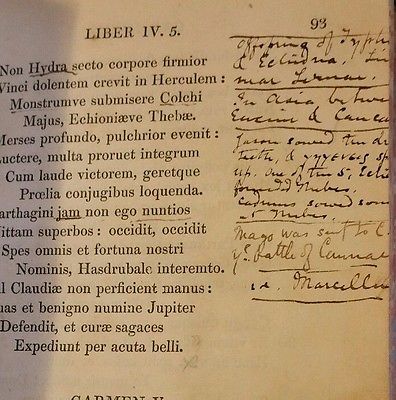 LIBER IV. 5.
93
Non Hydra secto corpore firmior
Vinci dolentem crevit in Herculem:
Monstrumve submisere Colchi
Majus, Echioniæve Thebæ.
Merses profundo, pulchrior evenit:
Luctere, multa proruet integrum
Cum laude victorem, geretque
Prœlia conjugibus loquenda.
arthagini jam non ego nuntios
ittam superbos: occidit, occidit
Spes omnis et fortuna nostri
Nominis, Hasdrubale interemto.
il Claudiæ non perficient manus:
uas et benigno numine Jupiter
Defendit, et curæ sagaces
Expediunt per acuta belli.
CARMEN V.
Offspring of Typh
& Echidna,
near Lernae.
In Asia betwe
Euxine & Caucas
Jason sowed the dr
teeth, & γηγενεις sp
up. One of the 5,
Thebes.
Cadmus sowed som
at Thebes.
Mago was sent to C
ye battle of Cannae
i.e. Marcellu